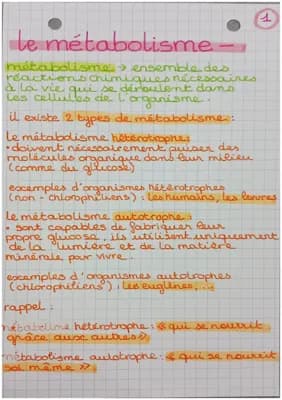 1
le métabolisme -
métabolisme → ensemble des
réactions chimiques nécessaires
à la vie qui se déroulent dans
les cellules de l'organisme.
il existe 2 types de métabolisme :
le métabolisme hétérotrophe :
• doivent nécessairement puiser des
molécules organique dans leur milieu
(comme du glucose)
exemples d'organismes hétérotrophes
(non-chlorophiliens) : les humains, les levures
le métabolisme autotrophe :
• sont capables de fabriquer leur
propre glucose, ils utilisent uniquement
de la lumière et de la matière
minérale pour vivre.
exemples d'organismes autotrophes
(chlorophiliens) : les euglènes, ...
rappel :
métabolisme hétérotrophe : « qui se nourrit
grâce aux autres »
métabolisme autotrophe : « qui se nourrit
soi même ».